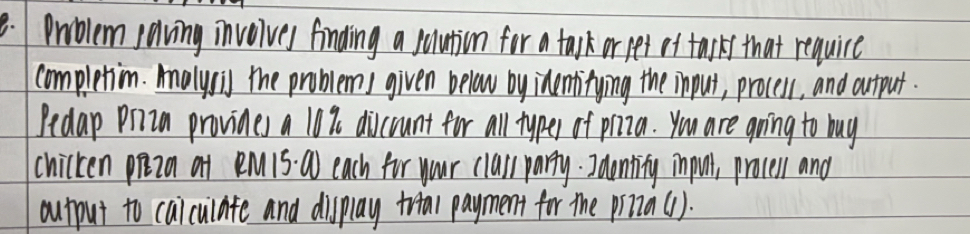 e. Problem solving involves finding a solution for a task or set of tasks that require
completion. Analysis the problems given below by identifying the input, process, and output.
Pedap Pizza provides a 10% discount for all types of pizza. You are going to buy
chicken pizza at RM15.00 each for your class party. Identify input, process and
output to calculate and display total payment for the pizza(s).